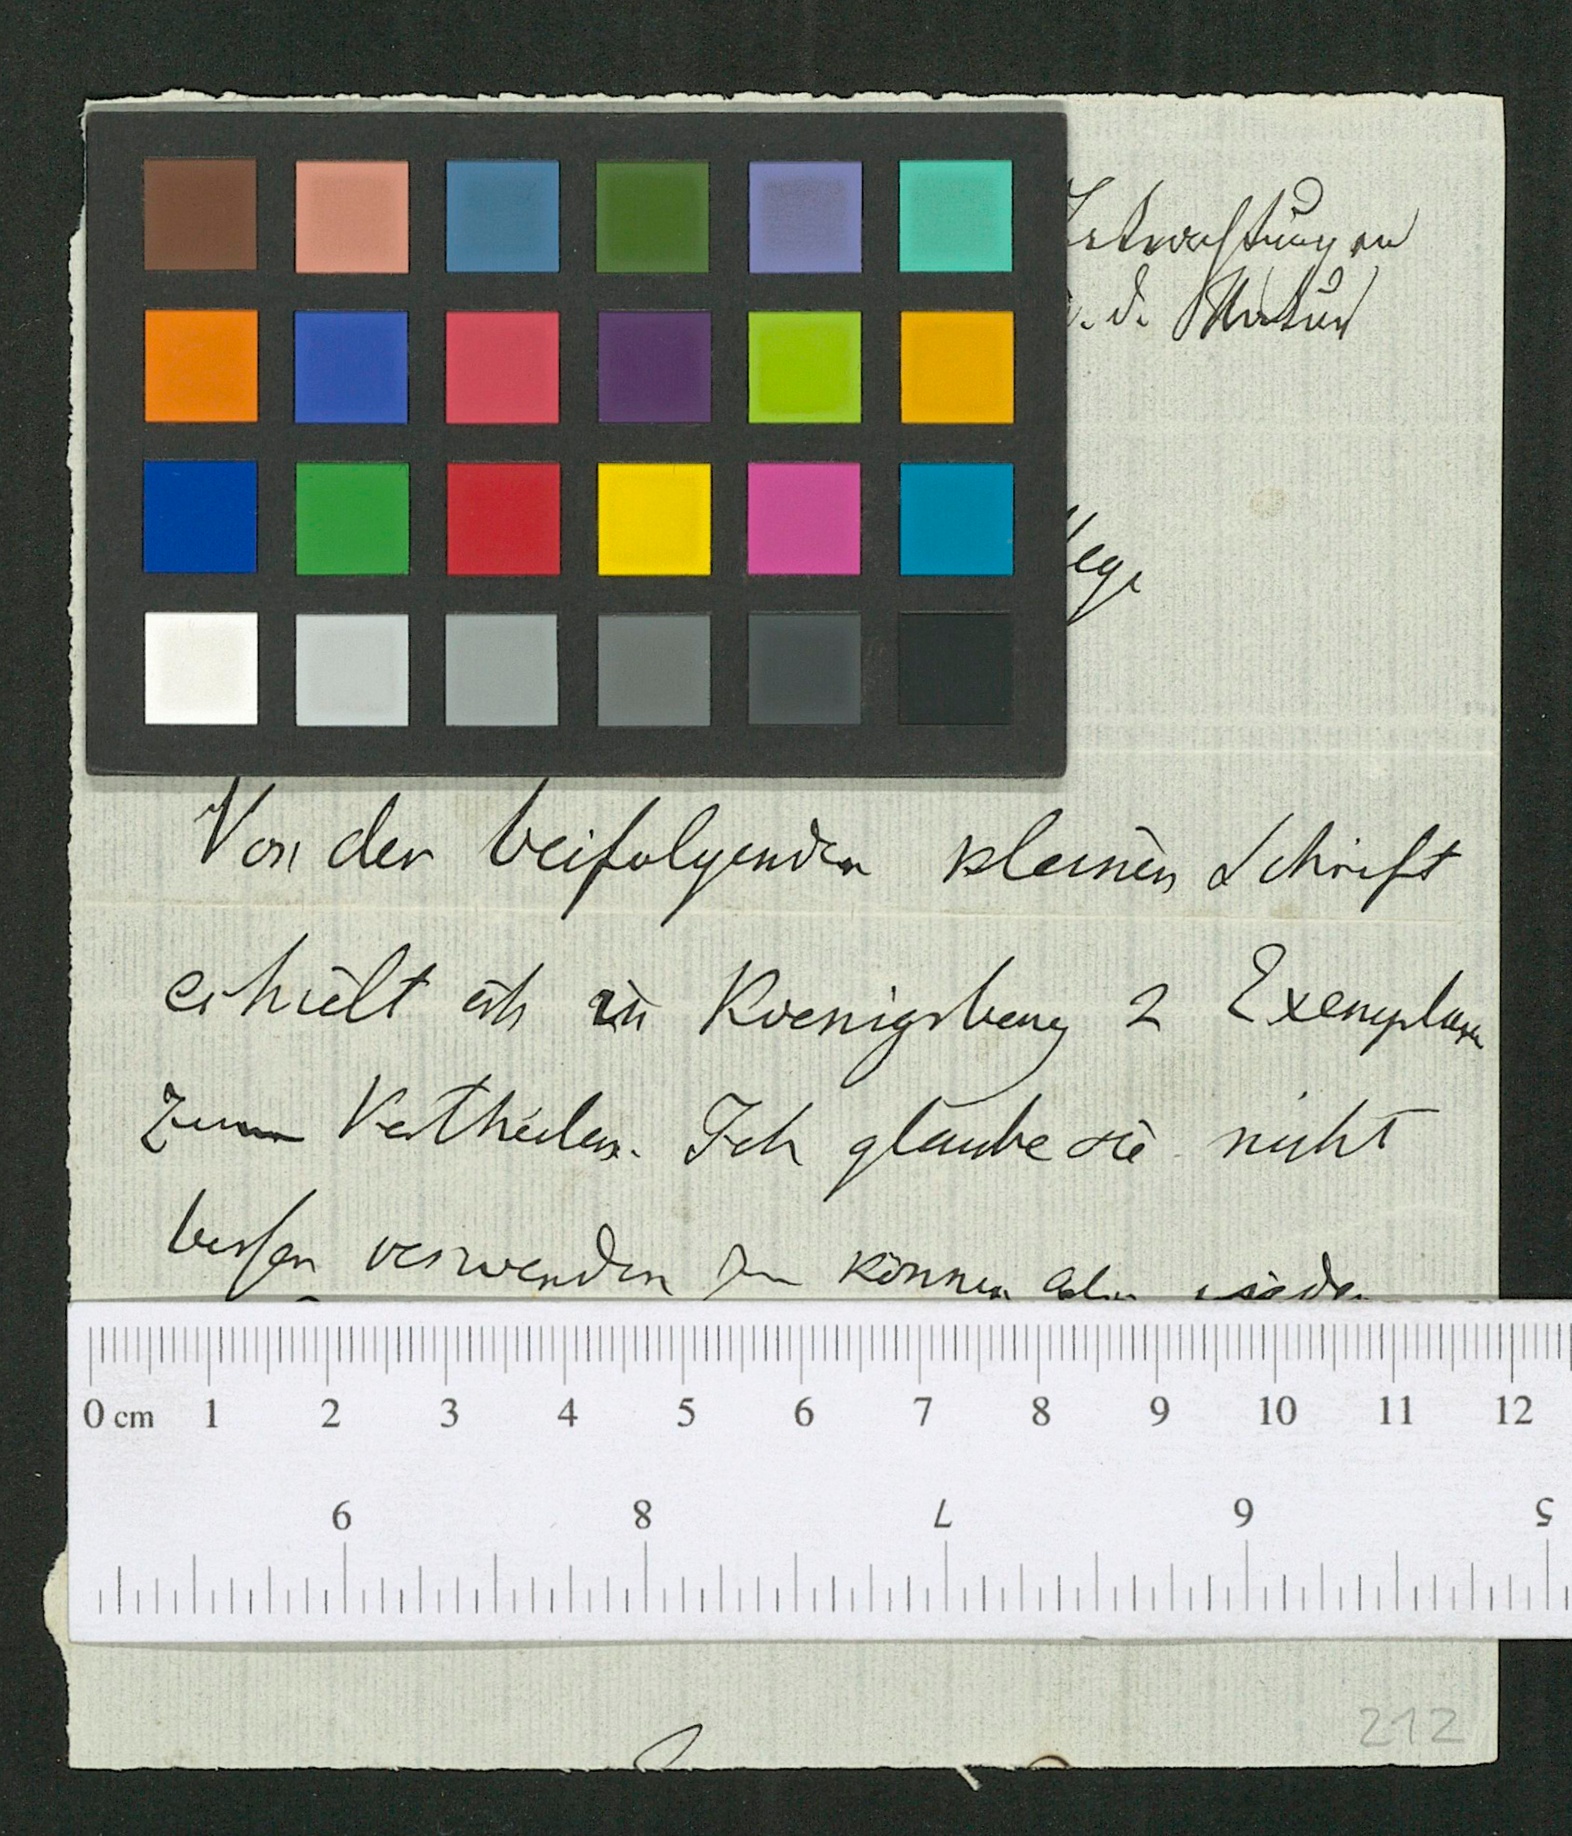 v. d. Natur
llege
Von der beifolgenden kleinen Schrift
erhielt ich in Koenigsberg 2 Exemplare
zum Vertheilen. Ich glaube sie nicht
besser verwenden zu können
0 cm 1 2 3 4 5 6 7 8 9 10 11 12
9 8 7 6 5
212